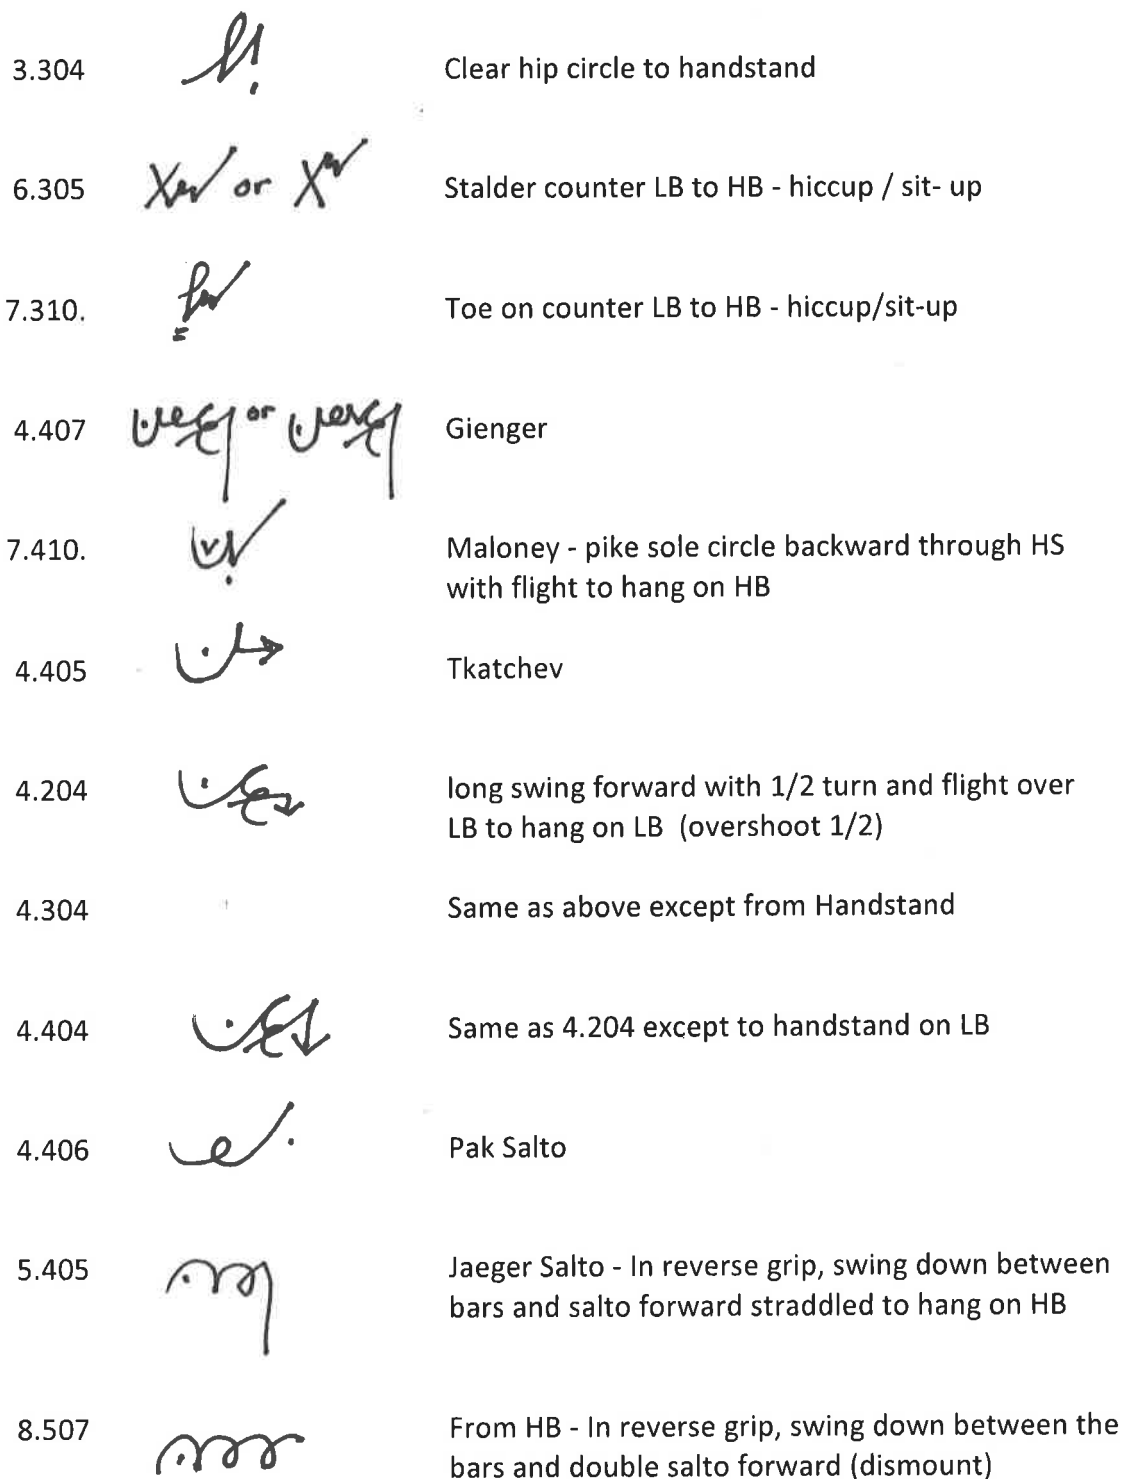 3.304 Clear hip circle to handstand
6.305 or Stalder counter LB to HB - hiccup / sit- up
7.310. Toe on counter LB to HB - hiccup/sit-up
4.407 or Gienger
7.410. Maloney - pike sole circle backward through HS
with flight to hang on HB
4.405 Tkatchev
4.204 long swing forward with 1/2 turn and flight over
LB to hang on LB (overshoot 1/2)
4.304 Same as above except from Handstand
4.404 Same as 4.204 except to handstand on LB
4.406 Pak Salto
5.405 Jaeger Salto - In reverse grip, swing down between
bars and salto forward straddled to hang on HB
8.507 From HB - In reverse grip, swing down between the
bars and double salto forward (dismount)